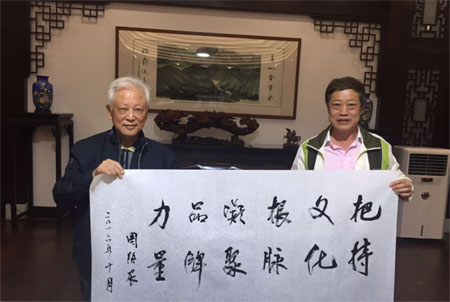 把持
文化
根脉
凝聚
品牌
力量
二〇一六年十月